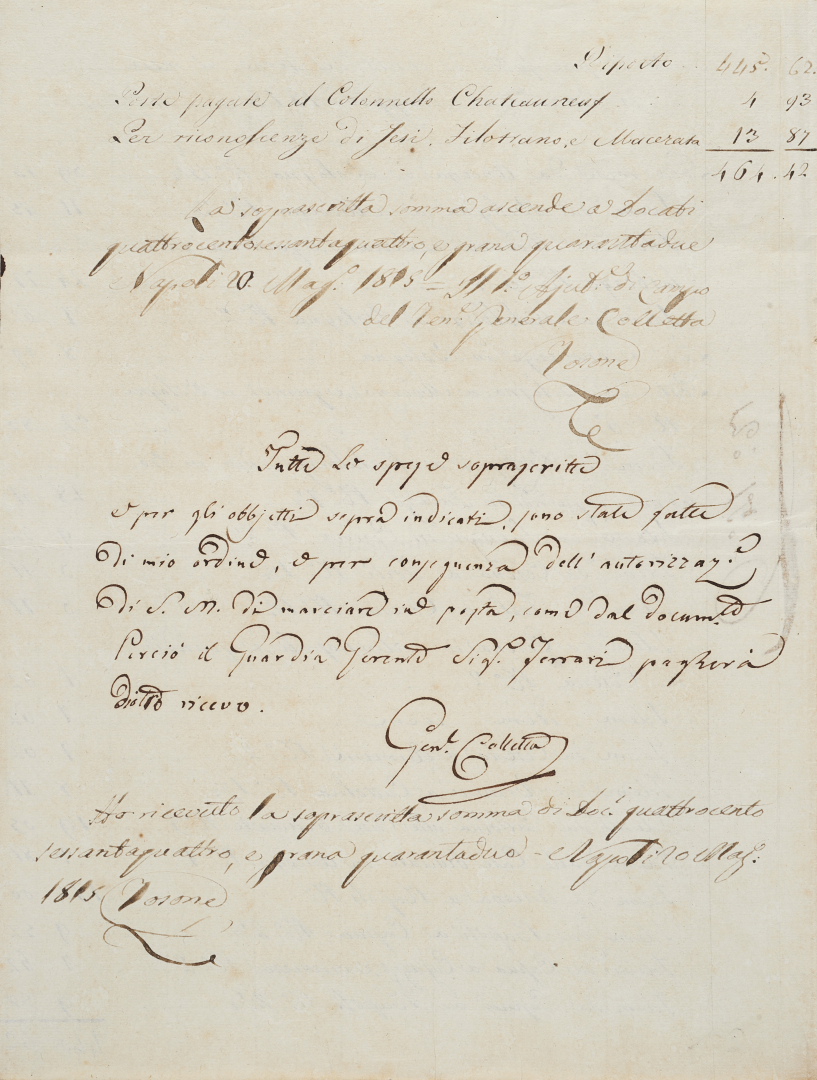 Riporto 445. 62.
Poste pagate al Colonnello Chateauneuf 4 93
Per riconoscenze di Jesi, Filotrano, e Macerata 13 87
464. 42
La soprascritta somma ascende a Docati
quattrocentosessantaquattro, e grana quarantadue
Napoli 20. Mag.º 1815 = Ajut.e di Campo
del Ten.e Generale Colletta
Tosone
Tutte le spese soprascritte
e per gli obbjetti sopra indicati, sono state fatte
di mio ordine, e per conseguenza dell' autorizzaz.e
di S. M. di marciare in posta, come dal docum.to
Perciò il Guardia Gerente Sig.r Ferrari pagherà
dietro ricevo.
Gen.l Colletta
Ho ricevuto la soprascritta somma di Doc.i quattrocento
sessantaquattro, e grana quarantadue - Napoli 20 Mag.º
1815 Tosone